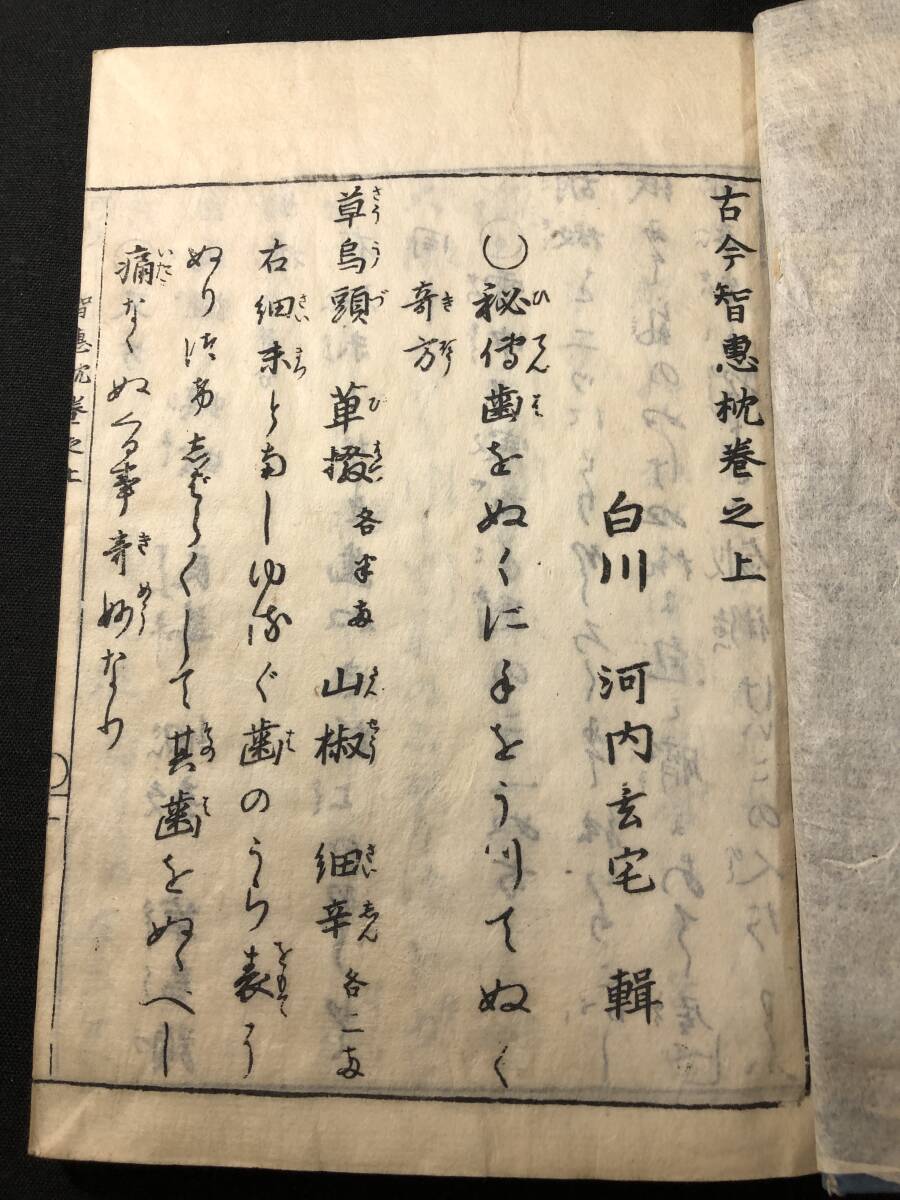 古今智惠枕巻之上
白川 河内玄宅 輯
○秘傳歯をぬくに手をうけてぬく
奇方
草烏頭 蓽撥各半両 山椒 細辛各二両
右細末となしゆるぐ歯のうら表に
ぬり付しばらくして其歯をぬくへし
痛なくぬくる事奇妙なり
智惠枕巻之上